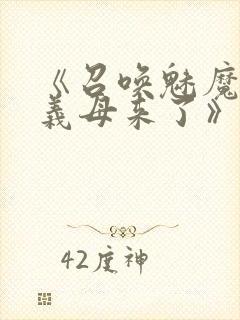 《召唤魅魔
義母来了》
42度神